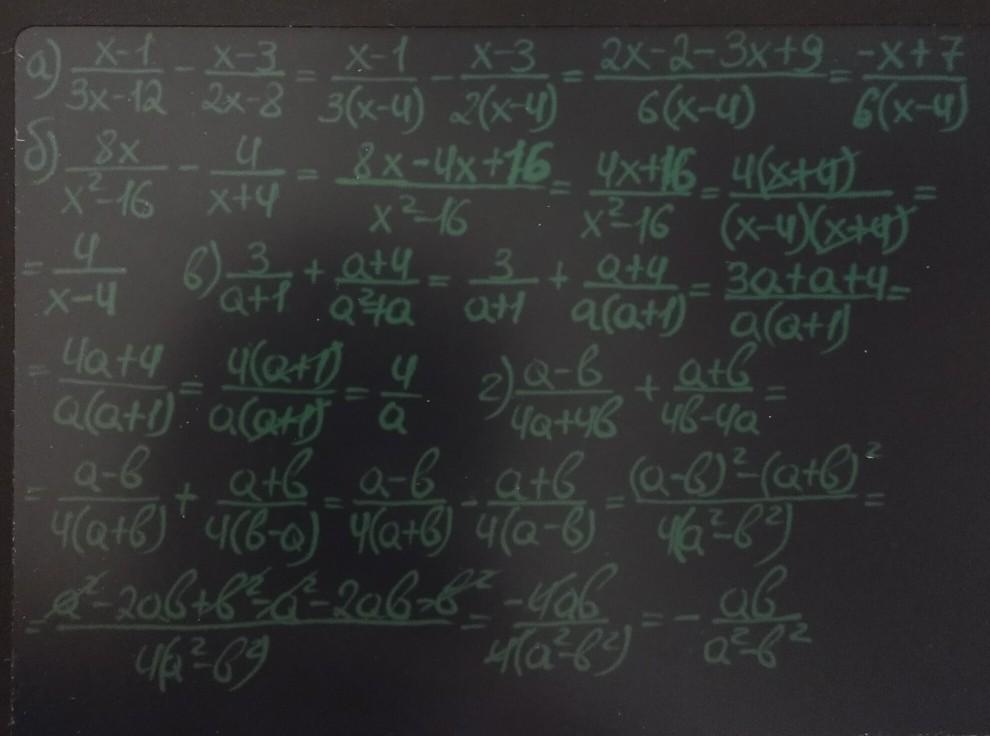 а) (x-1)/(3x-12) - (x-3)/(2x-8) = (x-1)/(3(x-4)) - (x-3)/(2(x-4)) = (2x-2-3x+9)/(6(x-4)) = (-x+7)/(6(x-4))
б) 8x/(x²-16) - 4/(x+4) = (8x-4x+16)/(x²-16) = (4x+16)/(x²-16) = (4(x+4))/((x-4)(x+4)) =
= 4/(x-4) в) 3/(a+1) + (a+4)/(a²+a) = 3/(a+1) + (a+4)/(a(a+1)) = (3a+a+4)/(a(a+1)) =
= (4a+4)/(a(a+1)) = (4(a+1))/(a(a+1)) = 4/a г) (a-b)/(4a+4b) + (a+b)/(4b-4a) =
= (a-b)/(4(a+b)) + (a+b)/(4(b-a)) = (a-b)/(4(a+b)) - (a+b)/(4(a-b)) = ((a-b)²-(a+b)²)/(4(a²-b²)) =
= (a²-2ab+b²-a²-2ab-b²)/(4(a²-b²)) = (-4ab)/(4(a²-b²)) = - ab/(a²-b²)